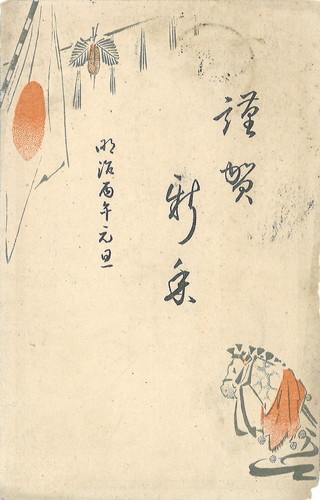 謹賀
新秊
明治丙午元旦